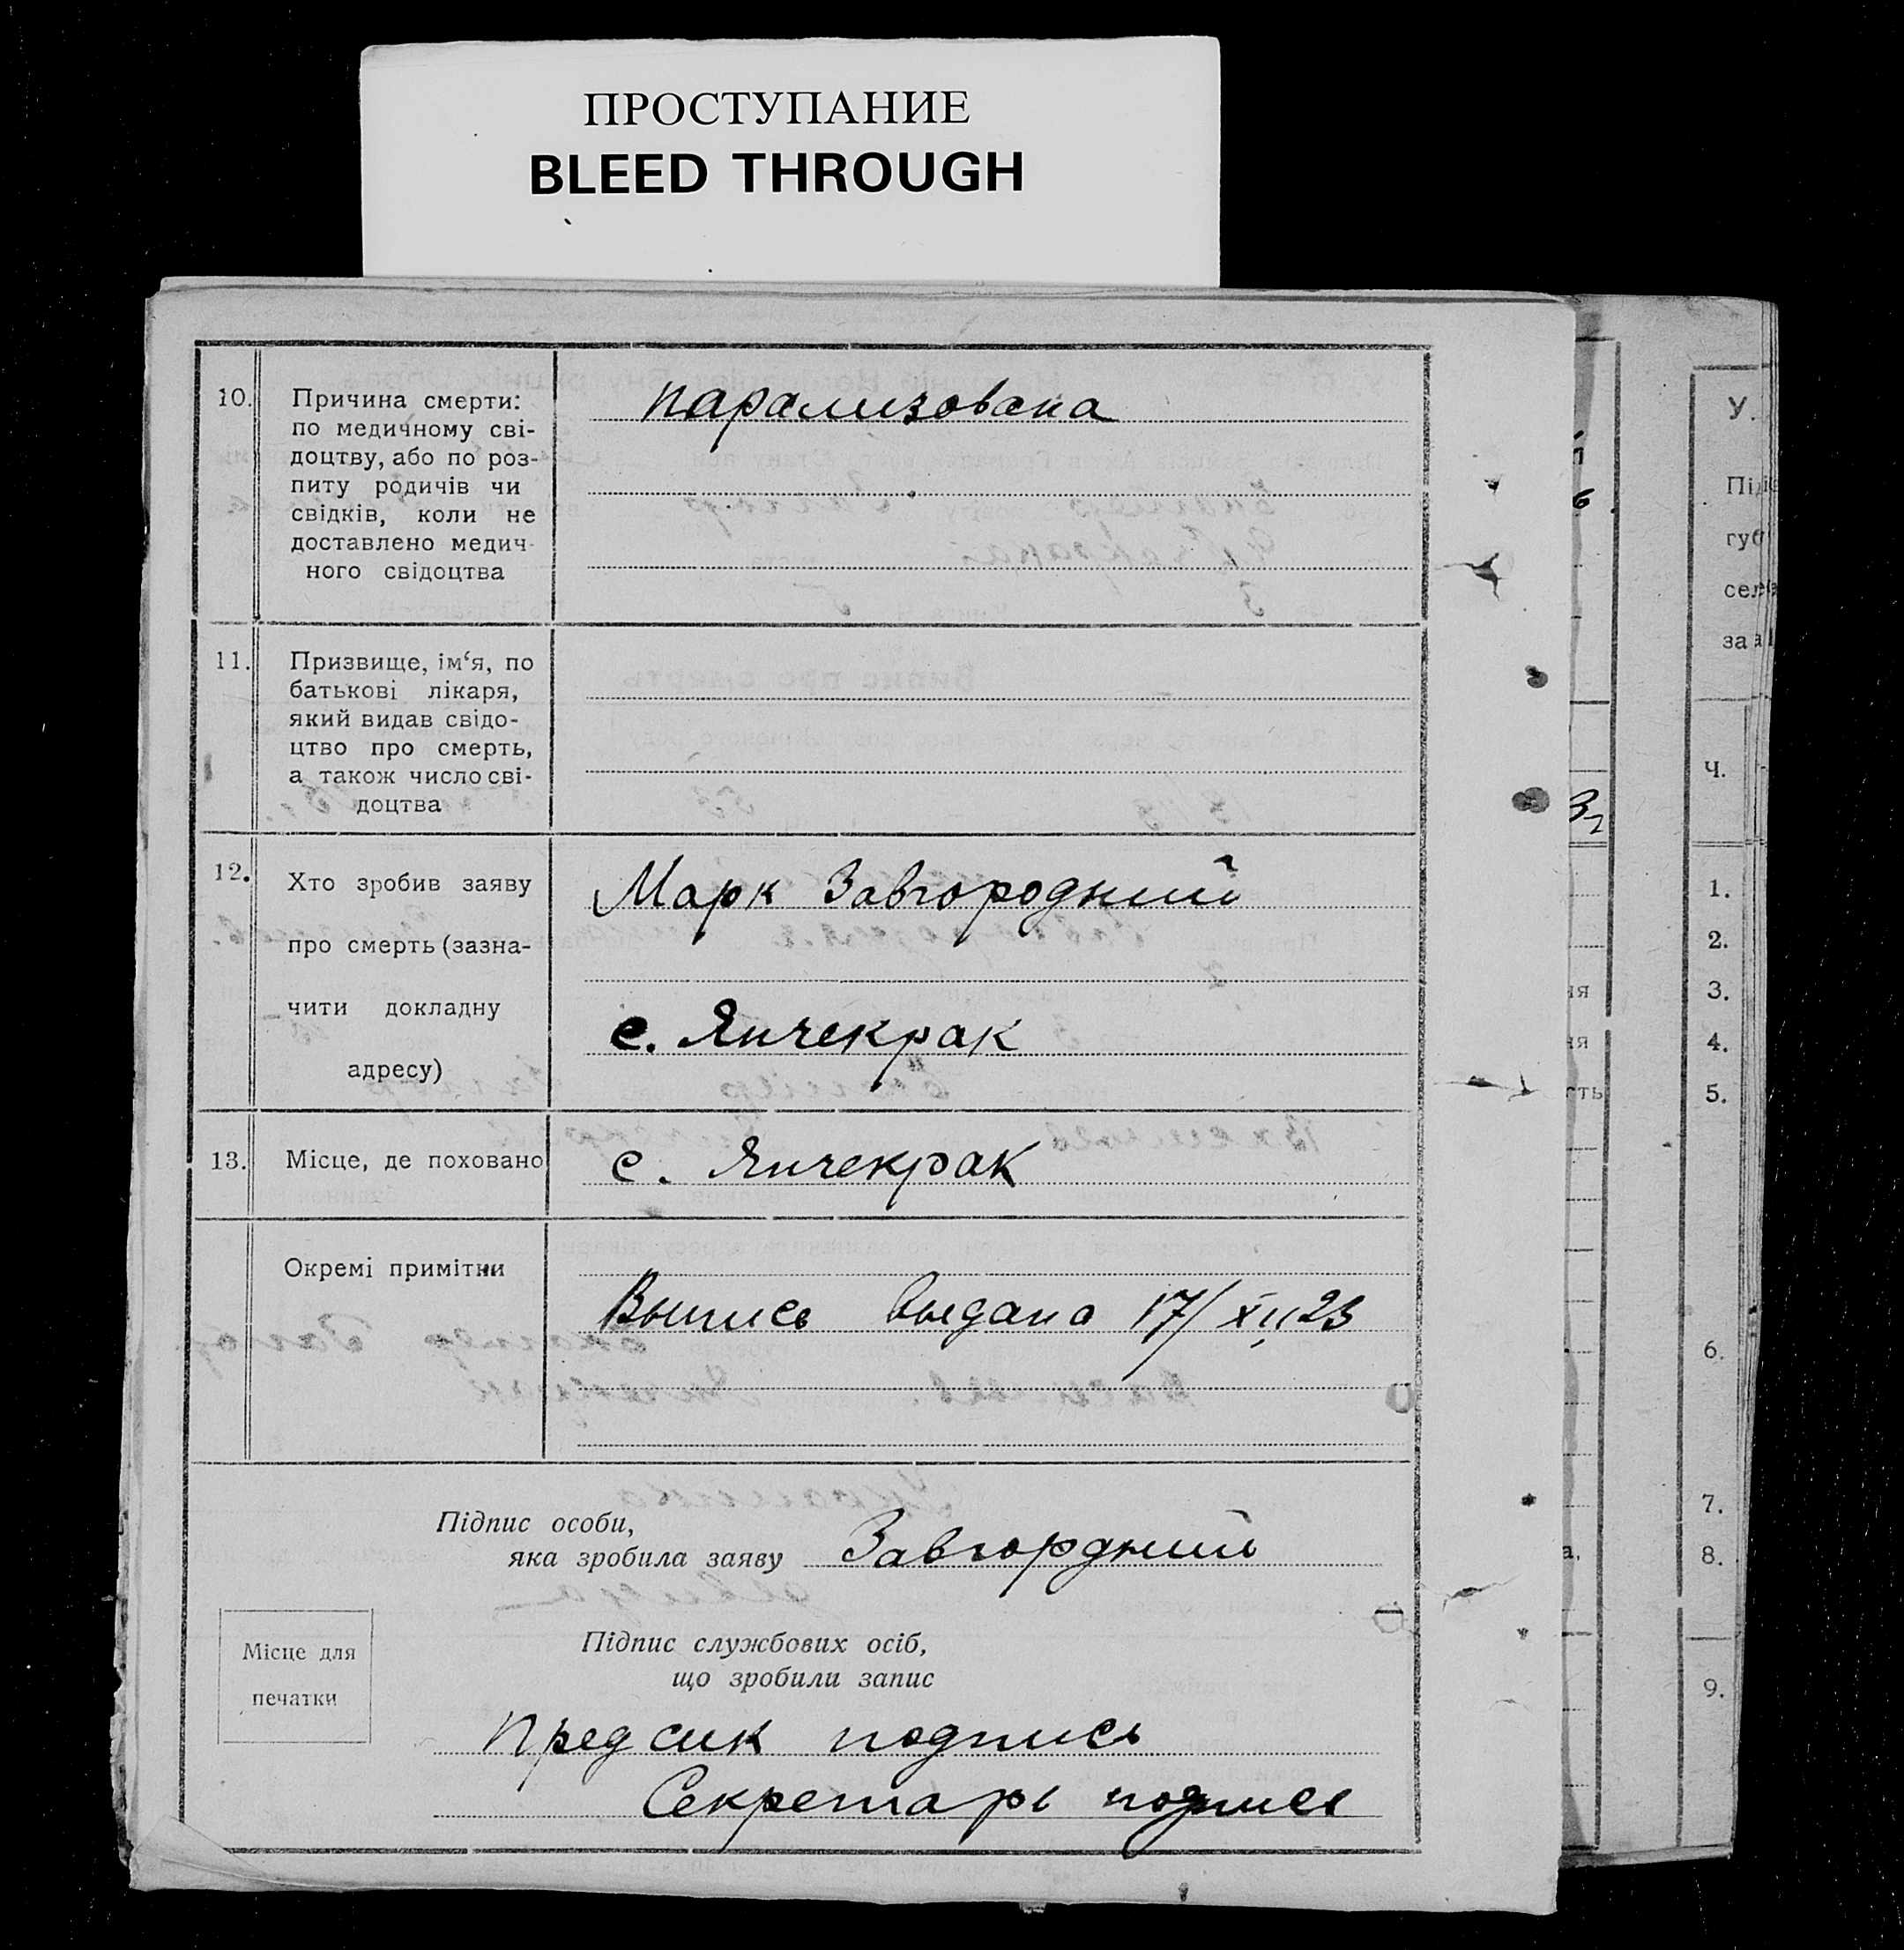 ПРОСТУПАНИЕ
BLEED THROUGH
10. Причина смерти:
по медичному сві-
доцтву, або по роз-
питу родичів чи
свідків, коли не
доставлено медич-
ного свідоцтва
парализована
11. Призвище, ім‘я, по
батькові лікаря,
який видав свідо-
цтво про смерть,
а також число сві-
доцтва
12. Хто зробив заяву
про смерть (зазна-
чити докладну
адресу)
Марк Завгородний
с. Янчекрак
13. Місце, де поховано
с. Янчекрак
Окремі примітки
Выпись выдана 17/XII 23
Підпис особи,
яка зробила заяву Завгордний
Місце для
печатки
Підпис службових осіб,
що зробили запис
Предсик подпись
Секретарь подпись
У.
Ч.
1.
2.
3.
4.
5.
6.
7.
8.
9.